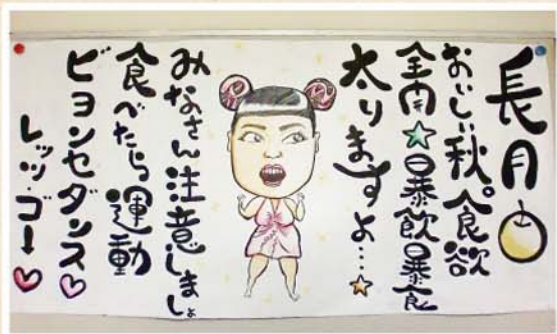 長月
おいしい秋。食欲
全開☆暴飲暴食
太りますよ…☆
みなさん注意しましょ
食べたら運動
ビヨンセダンス♡
レッツ・ゴー♡